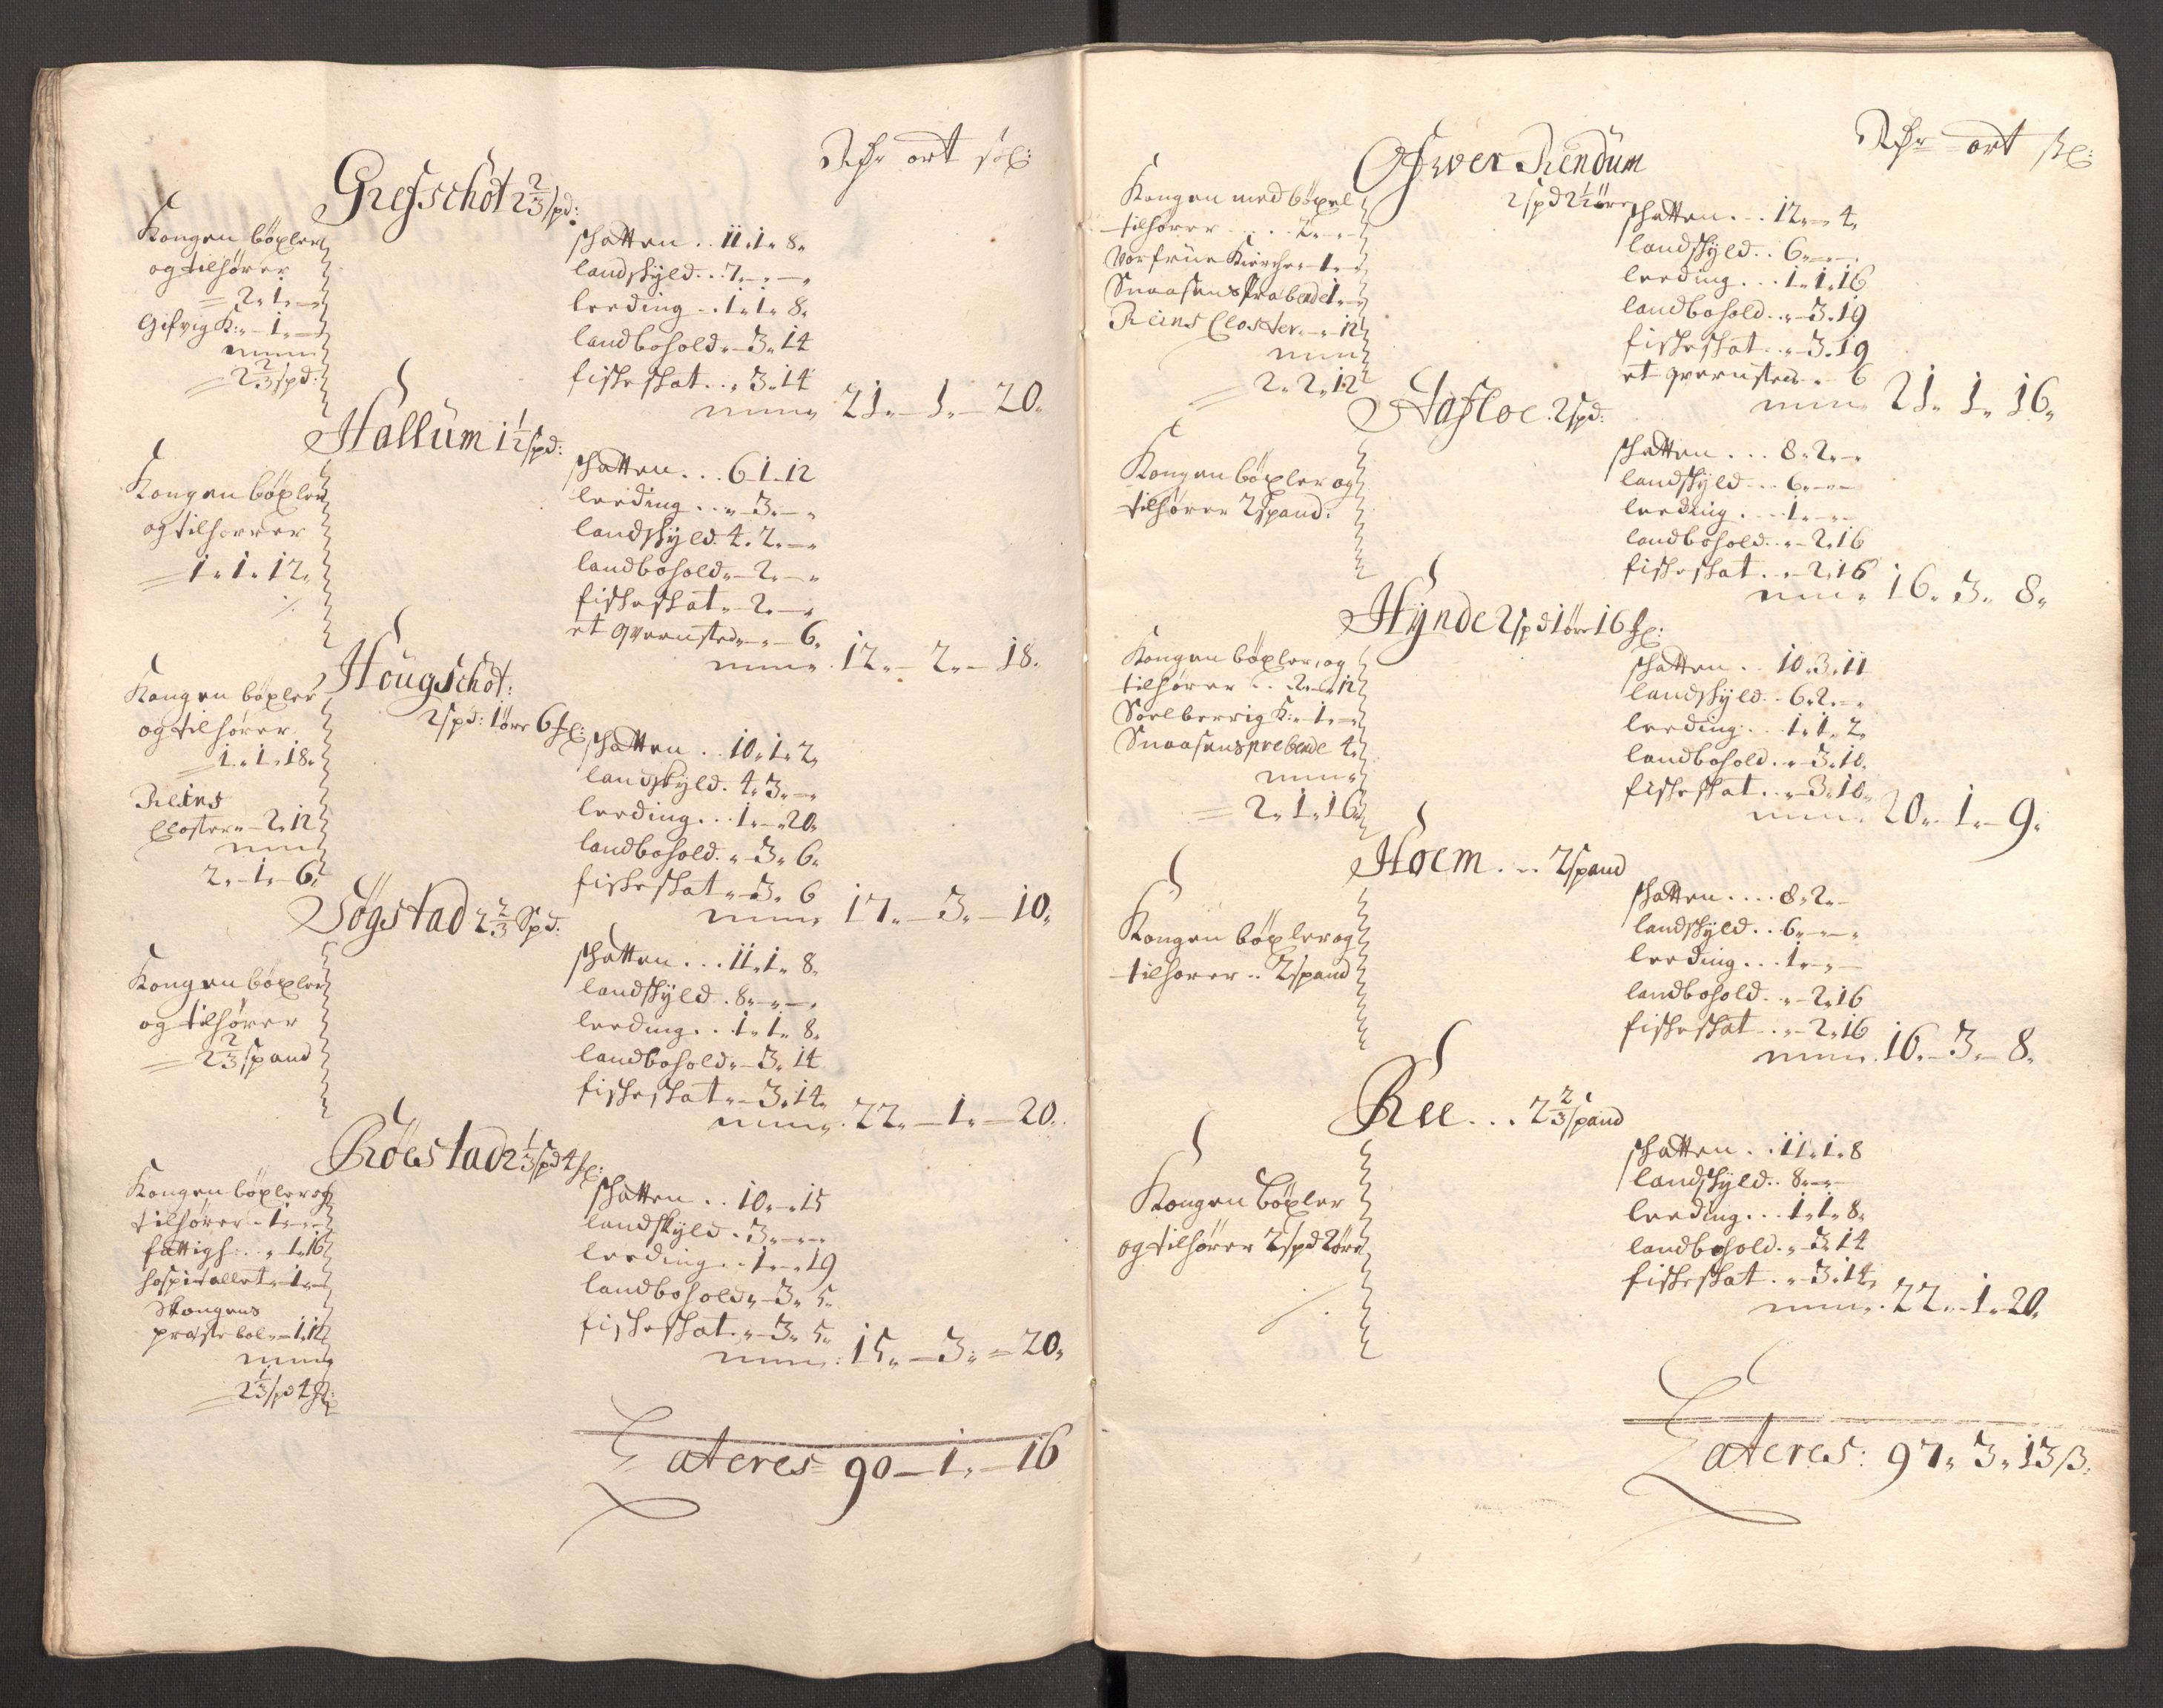 Rdr ort sk:
Grefschot 2 2/3 spd:
Kongen böxler
og tilhører
= 2 „ 1 „ —
Gifvig K: „ — 1 „ —
= 2 2/3 spd:
skatten . . 11 „ 1 „ 8 „
landskyld . . . 7 „ — „ — „
leeding . . 1 „ 1 „ 8 „
landbohold „ — 3 „ 14
fiskeskat . . „ 3 „ 14
21 „ — 1 „ — 20 „
Hallüm 1 1/2 spd:
Kongen böxler
og tilhører
= 1 „ 1 „ 12 „
skatten . . . 6 „ 1 „ 12
leeding . . „ — 3 „ — „
landskyld . 4 „ 2 „ — „
landbohold „ — 2 „ — „
fiskeskat „ — 2 „ — „
et qvernsted „ — „ — 6 „
12 „ — 2 „ — 18 „
Hougschot:
2 spd: 1 øre 6 sk:
Kongen böxler
og tilhører
1 „ 1 „ 18 „
Reins
Closter „ — 2 „ 12
2 „ — 1 „ — 6 „
skatten . . 10 „ 1 „ 2 „
landskyld . 4 „ 3 „ — „
leeding . . . 1 „ — „ 20 „
landbohold . „ 3 „ 6 „
fiskeskat „ — 3 „ 6
17 „ — 3 „ — 10 „
Søgstad 2 2/3 Spd:
Kongen böxler
og tilhører
= 2 2/3 spand
skatten . . . 11 „ 1 „ 8 „
landskyld . 8 „ — „ — „
leeding . . 1 „ 1 „ 8 „
landbohold „ — 3 „ 14
fiskeskat „ — 3 „ 14 „
22 „ — 1 „ — 20 „
Röestad 2 1/3 spd 4 sk:
Kongen böxler og
tilhører — 1 „ — „
fattigh: . . „ 1 „ 16
hospitallet „ — 1 „ —
Stangens
præstebol „ — 1 „ 12
= 2 1/3 spd 4 sk:
skatten . . 10 „ — „ 15
landskyld . 3 „ — „ — „
leeding . . 1 „ — „ 19
landbohold „ — 3 „ 5 „
fiskeskat . „ — 3 „ 5 „
15 „ — 3 „ — 20 „
Lateres 90 — 1 „ — 16
Rdr ort sk:
Ofwer Rendüm
2 spd 2 1/2 øre
Kongen med böxel
tilhører . . . . 2 „ — „ —
Vorfrüe Kirche „ 1 „ — „
Snaasens Præbende 1 „ — „
Reins Closter „ — „ 12
= 2 „ 2 „ 12
skatten . . . 12 „ — „ 4 „
landskyld . . 6 „ — „ — „
leeding . . . 1 „ 1 „ 16
landbohold . . „ — 3 „ 19
fiskeskat . . „ — 3 „ 19
et qvernsted „ — „ 6
21 „ 1 „ 16 „
Hafloe . 2 spd:
Kongen böxler og
tilhører 2 spand .
skatten . . . 8 „ 2 „ — „
landskyld . . 6 „ — „ —
leeding . . . 1 „ — „ —
landbohold . . „ — 2 „ 16
fiskeskat . . „ — 2 „ 16
16 „ 3 „ 8 „
Hÿnde 2 spd 1 øre 16 sk:
Kongen böxler, og
tilhører . . 2 „ — „ 12
Soelberrig K: „ — 1 „ — „
Snaasens prebende 4 „
= 2 „ 1 „ 16 „
skatten . . 10 „ 3 „ 11
landskyld . . 6 „ 2 „ — „
leeding . . . 1 „ 1 „ 2 „
landbohold . . „ — 3 „ 10 „
fiskeskat . . „ — 3 „ 10 „
20 „ — 1 „ — 9 „
Hoem . . . 2 spand
Kongen böxler og
tilhører . . 2 spand
skatten . . . . 8 „ 2 „ —
landskyld . . 6 „ — „ — „
leeding . . . 1 „ — „ —
landbohold . . „ — 2 „ 16
fiskeskat . . „ — 2 „ 16
16 „ — 3 „ — 8 „
Ree . . . 2 2/3 spand
Kongen böxler
og tilhører 2 spd 2 øre
skatten . . 11 „ 1 „ 8
landskyld . . 8 „ — „ —
leeding . . . 1 „ 1 „ 8 „
landbohold . „ — 3 „ 14
fiskeskat . . „ 3 „ 14 „
22 „ — 1 „ — 20 „
Lateres: 97 „ 3 „ 13 ß „